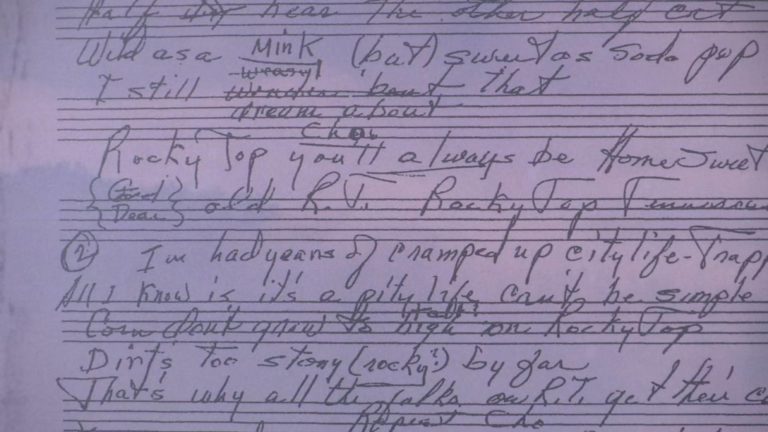 Half hear the other half cat
Wild as a Mink (but) sweet as Soda pop
weasel
I still wonder 'bout that
dream about
Cho
Rocky Top you'll always be Home Sweet
{Good Dear} old R.T. Rocky Top Tennessee
② I've had years of cramped up city life - Trapp
All I know is it's a pity life can't be simple
tall?
Corn don't grow to high on Rocky Top
Dirt's too stony (rocky?) by far
That's why all the folks on R.T. get their co
Repeat Cho